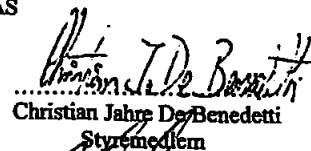 AS
Christian J. De Benedetti
Christian Jahre De Benedetti
Styremedlem